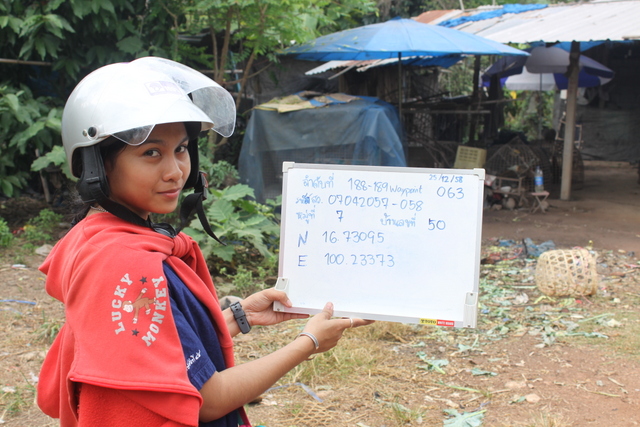 25/12/58
ลำดับที่ 188-189 waypoint 063
07042057-058
หมู่ที่ 7 บ้านเลขที่ 50
N 16.73095
E 100.23373
LUCKY
MONKEY